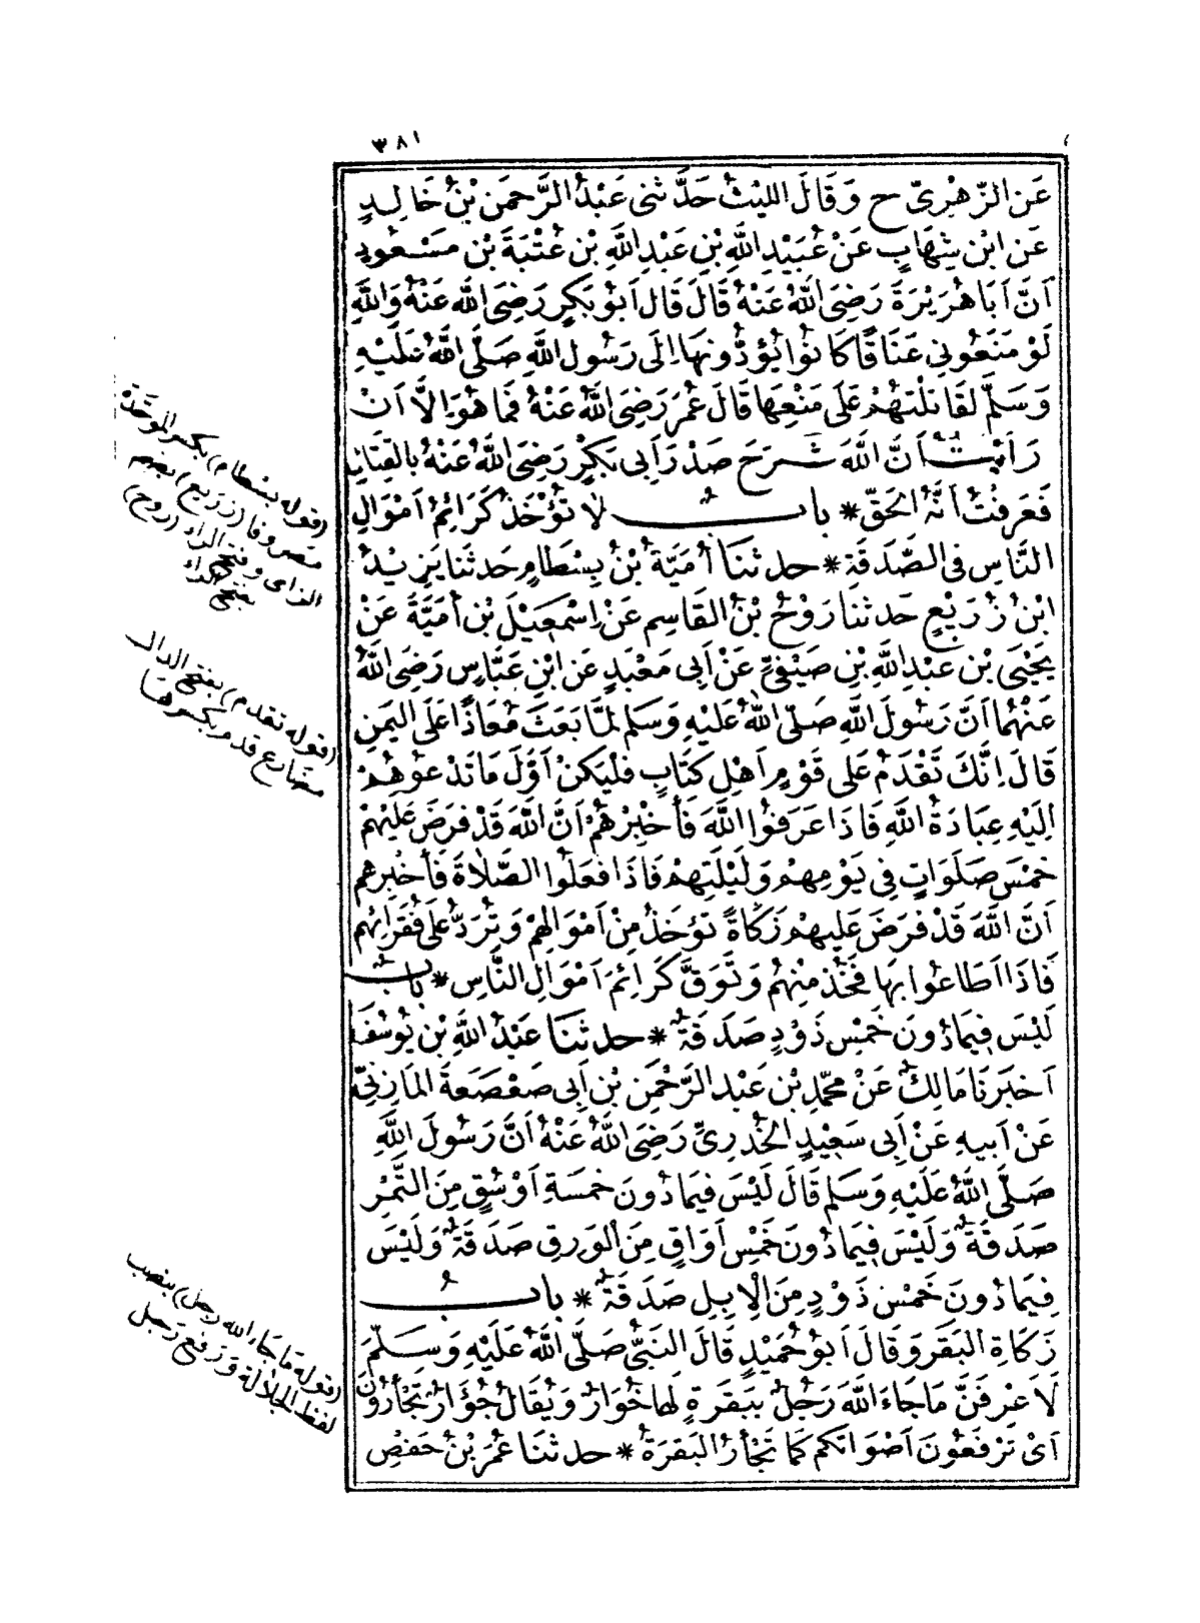 ٣٨١
عَنِ الزُّهْرِىِّ ح وَقَالَ اللَّيْثُ حَدَّثَنِى عَبْدُ الرَّحمَنِ بْنُ خَالِدٍ
عَنِ ابْنِ شِهَابٍ عَنْ عُبَيْدِ اللَّهِ بْنِ عَبْدِ اللَّهِ بْنِ عُتْبَةَ بْنِ مَسْعُودٍ
اَنَّ اَبَا هُرَيْرَةَ رَضِىَ اللَّهُ عَنْهُ قَالَ قَالَ اَبُو بَكْرٍ رَضِىَ اللَّه عَنْهُ وَاللَّهِ
لَوْ مَنَعُونِى عَنَاقًا كَانُوا يُؤدُّونَهَا اِلَى رَسُولِ اللَّهِ صَلَّى اللَّهُ عَلَيْهِ
وَسَلَّمَ لَقَاتَلْتهُمْ عَلَى مَنْعِهَا قَالَ عُمَرَ رَضِىَ اللَّهُ عَنْهُ فَمَا هُوَ اِلَّا اَنْ
رَاَيْتُ اَنَّ اللَّهَ شَرَحَ صَدْرَ اَبِى بَكْرٍ رَضِىَ اللَّهُ عَنْهُ بِالقِتَالِ
فَعَرَفْتُ اَنَّهُ الحَقُّ * بابُ لَا تُؤْخَذُ كَرَائِمُ اَمْوَالِ
النَّاسِ فِى الصَّدَقَةِ * حدثنَا اُمَيَّةُ بْنُ بِسْطَامٍ حَدثَنَا يَزِيْدُ
ابْنُ زُرَيْعٍ حَدثنَا رَوْحُ بْنُ القَاسِمِ عَنْ اِسْمَعِيْلَ بْنِ اُمَيَّةَ عَنْ
يَحْيَى بْنِ عَبْدِ اللَّهِ بْنِ صَيْفىٍّ عَنْ اَبِى مَعْبَدٍ عَن ابْنِ عَبَّاسٍ رَضِىَ اللَّهُ
عَنْهُمَا اَنَّ رَسُولَ اللَّهِ صَلَّى اللَّهُ عَلَيْهِ وَسَلم لَمَّا بَعَثَ مُعَاذًا عَلَى اليَمَنِ
قَالَ اِنَّكَ تَقْدَمُ عَلَى قَوْمٍ اَهْلِ كِتَابٍ فَلْيَكنْ اَوَّلَ مَا تَدْعوهُمْ
اِلَيْهِ عِبَادَةُ اللَّهِ فَاِذَا عَرَفُوا اللَّهَ فَأخْبِرْهُمْ اَنَّ اللَّهَ قَدْ فَرَضَ عَلَيْهِمْ
خَمْسَ صَلَوَاتٍ فِى يَوْمِهِمْ وَلَيْلَتِهِمْ فَاِذَا فَعَلُوا الصَّلَاةَ فَأخْبِرْهم
اَنَّ اللَّهَ قَدْ فَرَضَ عَلَيهِمْ زَكَاةً تؤخَذُ مِنْ اَمْوَالِهِمْ وَتُرَدُّ عَلَى فُقَرَائِهِم
فَاِذَا اَطَاعُوا بِهَا فَخُذْ مِنْهُمْ وَتَوَقَّ كَرَائِمَ اَمْوَالِ النَّاسِ * بابُ
لَيْسَ فِيمَا دُونَ خَمْسِ ذَوْدٍ صَدَقَةٌ * حدثنَا عَبْدُ اللَّهِ بْن يُوسُفَ
اَخبَرنَا مَالِكٌ عَنْ مُحمَّدِ بْنِ عَبْدِ الرَّحْمَنِ بْنِ اَبِى صَعْصَعَةَ المَازِنِىِّ
عَنْ اَبِيهِ عَنْ اَبِى سَعِيْدٍ الخُدْرِىِّ رَضِىَ اللَّهُ عَنْهُ اَنَّ رَسُولَ اللَّهِ
صَلَّى اللَّهُ عَلَيْهِ وَسَلم قَالَ لَيْسَ فِيمَا دُونَ خَمسَةِ اَوْسُقٍ مِنَ التَّمْرِ
صَدَقَةٌ وَلَيْسَ فِيمَا دُونَ خَمْسِ اَوَاقٍ مِنَ الوَرِقِ صَدَقَةٌ وَلَيْسَ
فِيمَا دُونَ خَمْسِ ذَوْدٍ مِنَ الْاِبِلِ صَدَقَةٌ * بابُ
زَكَاةِ البَقَرِ وَقَالَ اَبُو حُمَيْدٍ قَالَ النَّبِىُّ صَلَّى اللَّهُ عَلَيْهِ وَسَلَّمَ
لَاَعْرِفَنَّ مَا جَاءَ اللَّهَ رَجُلٌ بِبَقَرَةٍ لَهَا خُوَارٌ وَيُقَالُ جُؤَارٌ تَجْأَرُونَ
اَىْ تَرْفَعُونَ اَصْوَاتكم كَمَا تَجْأرُ البَقَرَةُ * حدثنَا عُمَرُ بْنُ حَفْصِ
(قوله بسْطام) بكسر الموَحَّدة
مَصروفا (زرَيع) بضم
الزاى وفتح الراء (رَوح)
بفتح الراء
(قوله تقدم) بفتح الدال
مضَارع قدم بكسرهَا
(قوله مَا جَاءَ الله رجل) بنصب
لفظ الجلالة وَرَفع رَجل